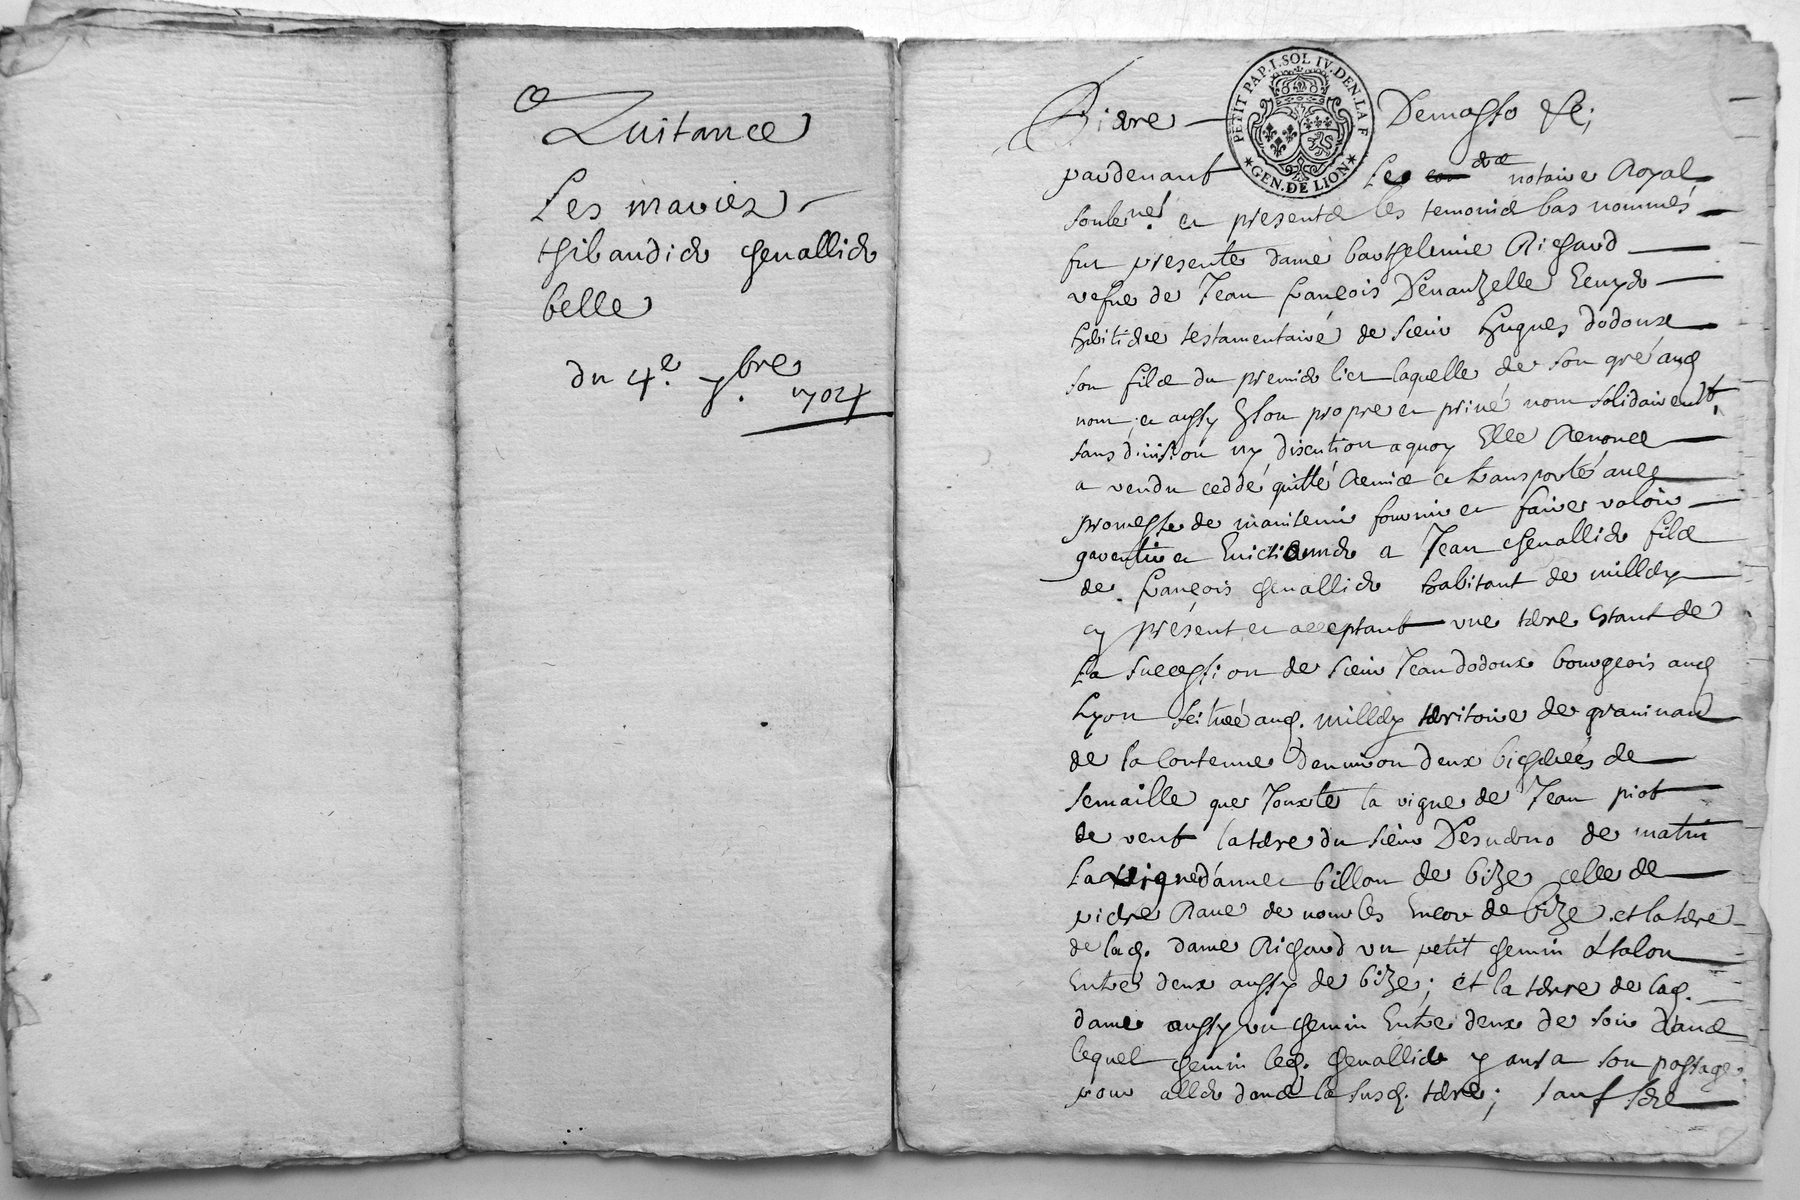 Quitance
Les mariez
thibaudier chevallier
belle
du 4.e 7.bre
1704
PETIT PAP. I. SOL IV. DEN. LA F
★ GEN. DE LION ★
Pierre Demasso &c;
pardevant Le notaire Royal
soub.né et presents les temoins bas nommés
fut presente dame barthelemie Richard
vefve de Jean françois Denauzelle Ecuyer
heritiere testamentaire de sieur hugues dodoux
son fils du premier lict laquelle de son gré aud
nom, et aussy En son propre et privé nom solidairemt,
sans division ny discution a quoy Elle Renonce
a vendu ceddé quitté Remis et transporté avec
promesse de maintenir fournir et faire valoir
garentir et Eviction a Jean chevallier fils
de françois chevallier habitant de millery
cy présent et acceptant une terre Estant de
La succession de sieur Jean dodoux bourgeois aud
Lyon scituée aud. millery territoire de
de la contenue denviron deux bicherées de
semaille que Jouxte la vigne de Jean piot
de vent la terre du sieur de matin
La vigne billon de bize celle de
pierre de Encor de bize et la terre
de lad. dame Richard un petit chemin
Entre deux aussy de bize; et la terre de lad.
dame aussy un chemin Entre deux de soir dans
lequel chemin led. chevallier y aura son passage
pour aller dans la susd. terre; sauf